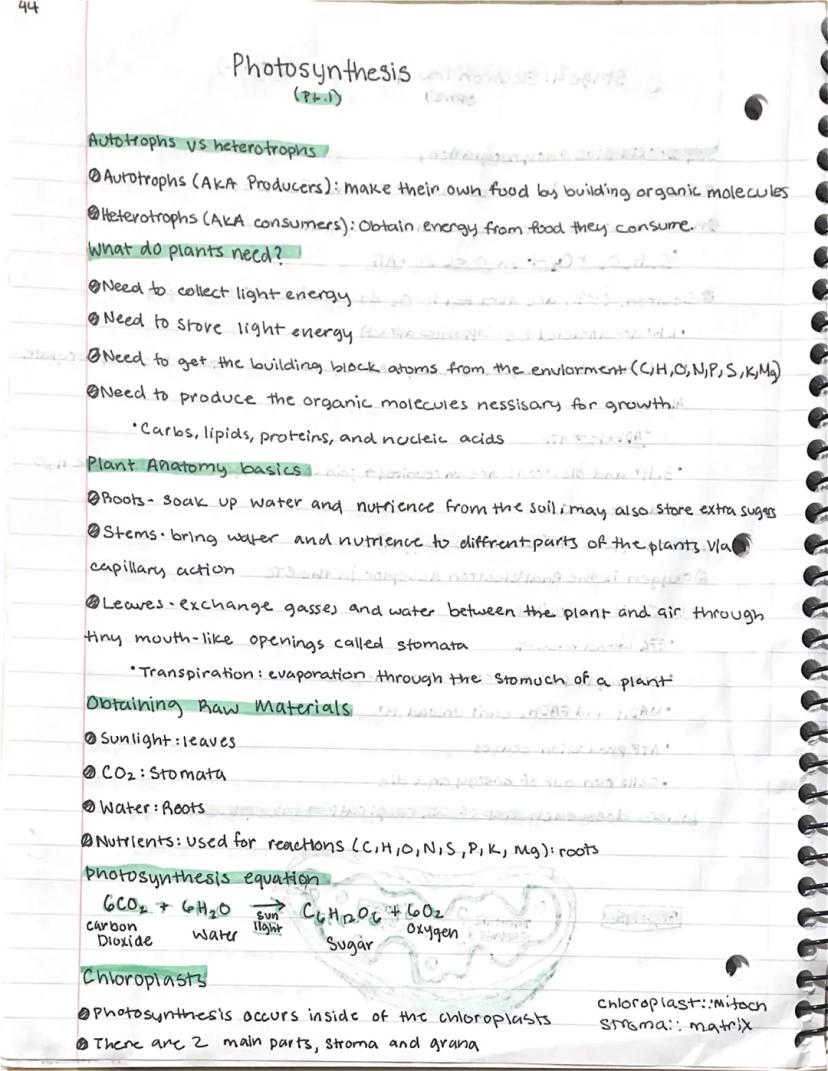 44
Photosynthesis
(Pt.1)
Autotrophs vs heterotrophs
Autotrophs (AKA Producers): make their own food by building organic molecules
Heterotrophs (AKA consumers): Obtain energy from food they consume.
What do plants need?
Need to collect light energy
Need to store light energy
Need to get the building block atoms from the enviorment (C,H,O,N,P,S,K,Mg)
Need to produce the organic molecules nessisary for growth
•Carbs, lipids, proteins, and nucleic acids
Plant Anatomy basics
Roots- soak up water and nutrience from the soil; may also store extra sugars
Stems- bring water and nutrience to diffrent parts of the plants via
capillary action
Leaves- exchange gasses and water between the plant and air through
tiny mouth-like openings called stomata
•Transpiration: evaporation through the stomuch of a plant
Obtaining Raw Materials
Sunlight: leaves
CO2: Stomata
Water: Roots
Nutrients: used for reactions (C,H,O,N,S,P,K,Mg): roots
Photosynthesis equation
6CO2 + 6H2O → C6H12O6 + 6O2
Carbon Dioxide Water sun light Sugar Oxygen
Chloroplasts
Photosynthesis occurs inside of the chloroplasts
There are 2 main parts, stroma and grana
chloroplast::mitoch
stroma:: matrix